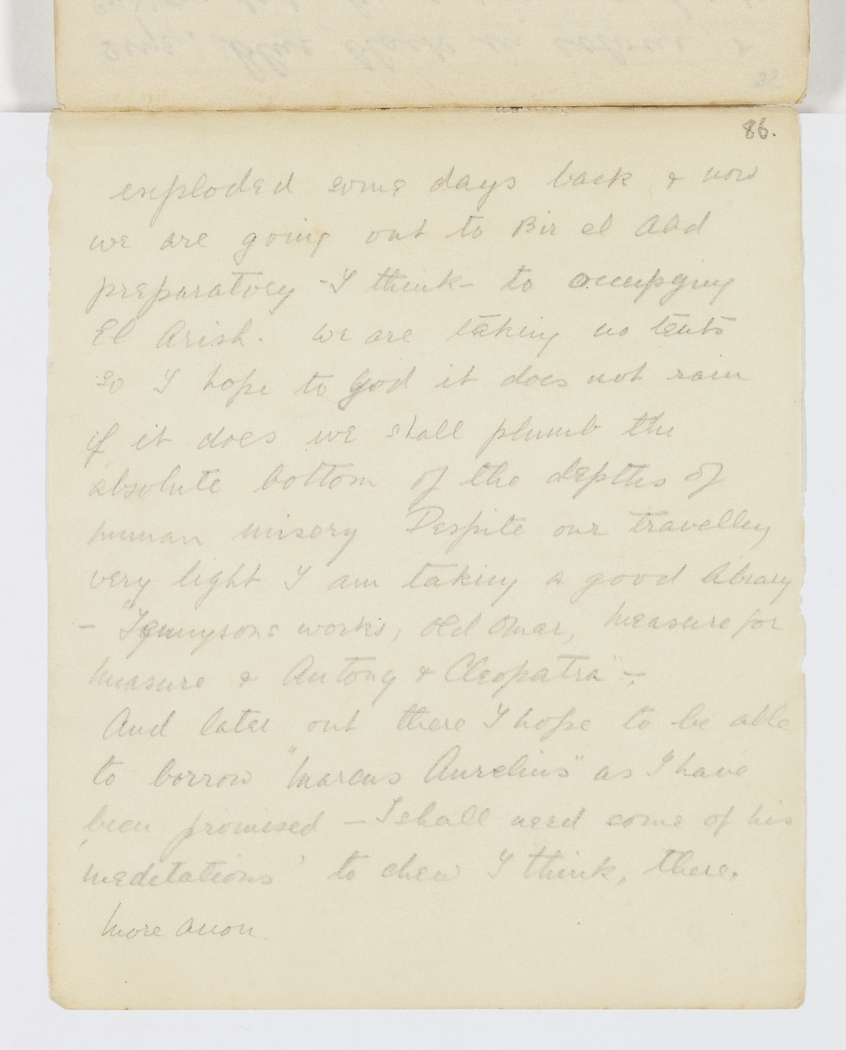 86.
exploded some days back & now
we are going out to Bir el Abd
preparatory - I think - to occupying
El Arish. We are taking no tents
so I hope to God it does not rain
if it does we shall plumb the
absolute bottom of the depths of
human misery Despite our travelling
very light I am taking a good library
- "Tennysons works, Old Omar, Measure for
Measure & Antony & Cleopatra" -
And later out there I hope to be able
to borrow "Marcus Aurelius" as I have
been promised - I shall need some of his
'meditations' to chew I think, there.
More anon.